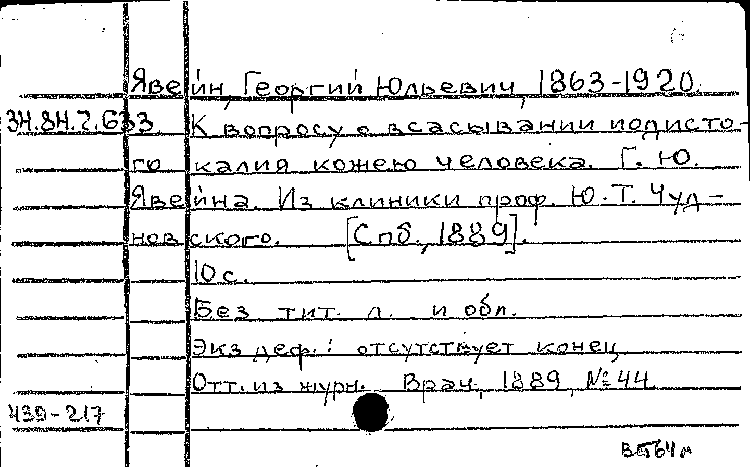 Явейн, Георгий Юльевич, 1863-1920.
34.84.7.633 К вопросу о всасывании иодисто-
го калия кожею человека. Г. Ю.
Явейна. Из клиники проф. Ю. Т. Чуд-
новского. [Спб., 1889].
10 с.
Без тит. л. и обл.
Экз деф.: отсутствует конец
Отт. из журн. Врач, 1889, № 44
439-217